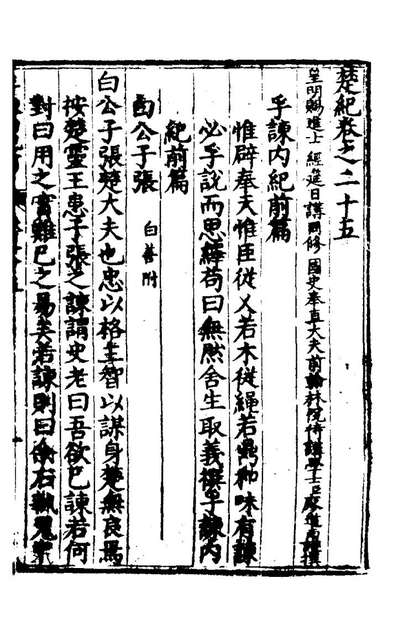 楚紀卷之二十五
皇明賜進士 經筵日講同修 國史奉直大夫前翰林院侍講學士臣廖道南撰
孚諫內紀前篇
惟辟奉天惟臣從乂若木從繩若鼎和味有諫
必孚說而思繹苟曰無然舍生取義撰孚諫內
紀前篇
白公子張 白善附
白公子張楚大夫也忠以格主智以謀身楚無良焉
按楚靈王患子張之諫謂史老曰吾欲已諫若何
對曰用之實難已之易矣若諫則曰余左執鬼